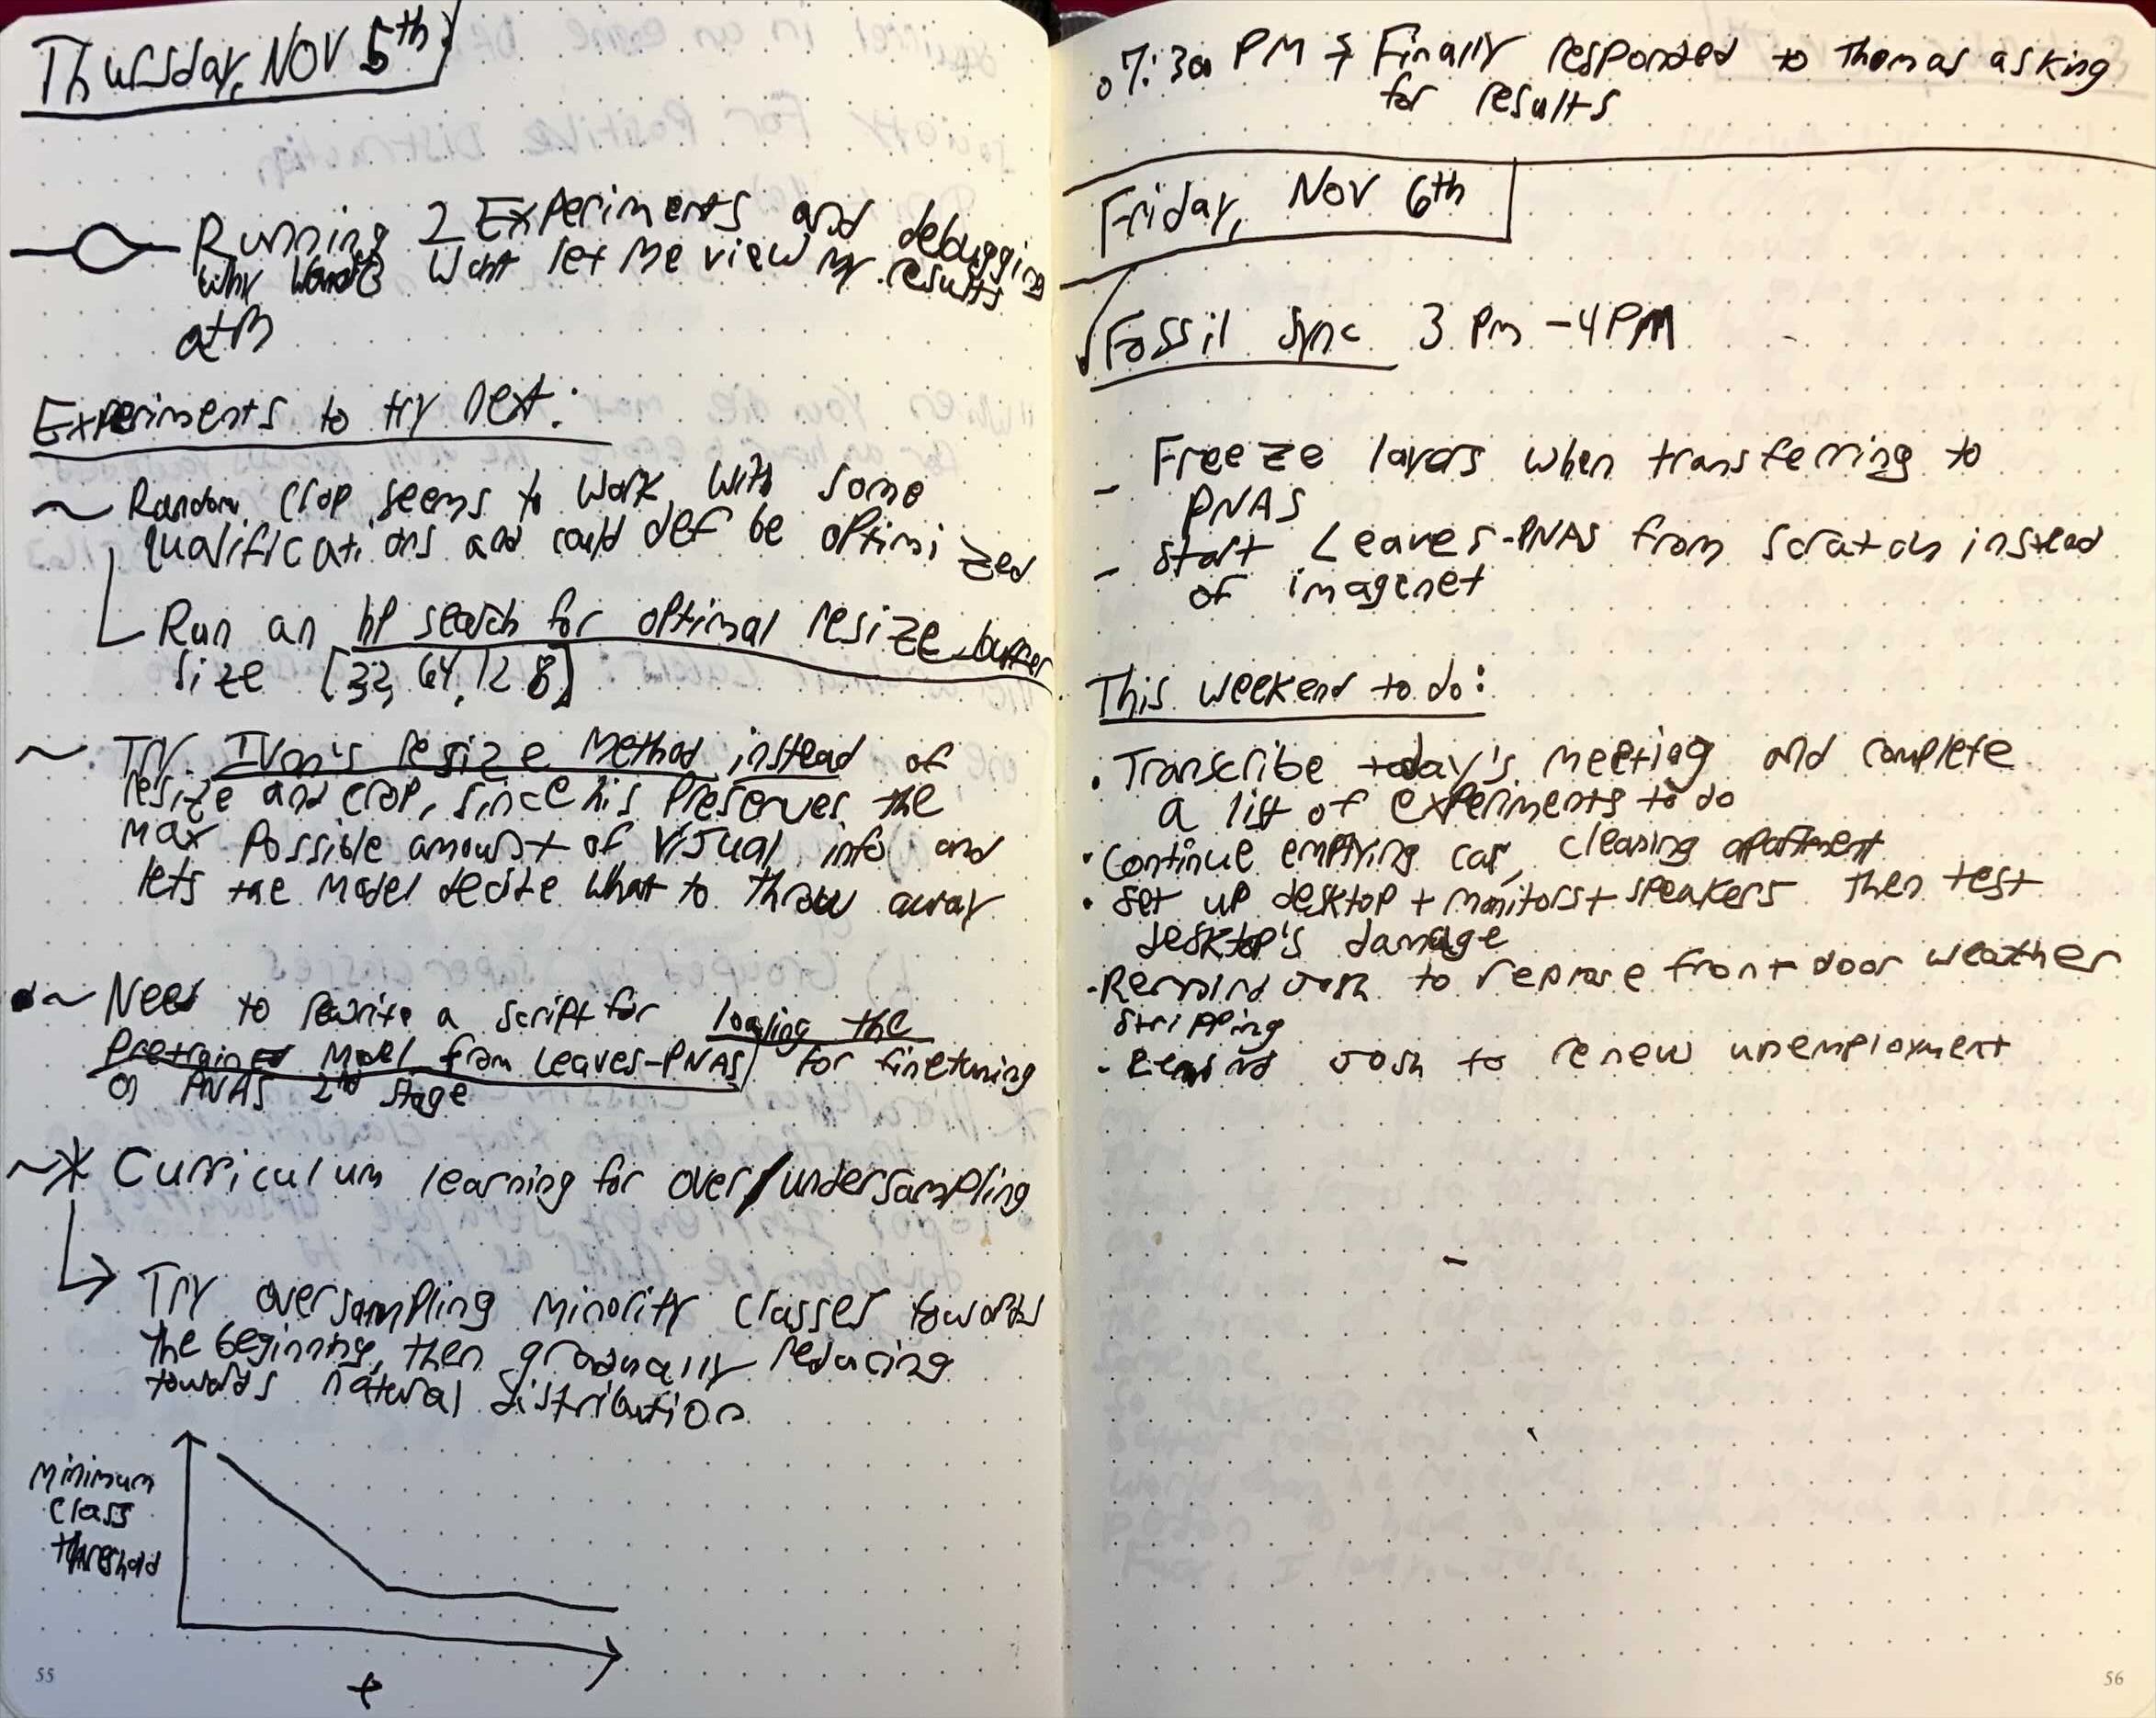 Thursday, NOV 5th
Running 2 Experiments and debugging
why WandB wont let me view my results
atm
Experiments to try next:
~ Random crop seems to work with some
qualifications and could def be optimized
Run an hp search for optimal resize-buffer
size [32, 64, 128]
~ Try Ivan's resize method instead of
resize and crop, since his preserves the
max possible amount of visual info and
lets the model decide what to throw away
~ Need to rewrite a script for loading the
pretrained model from Leaves-PNAS for finetuning
on PNAS 2nd stage
~* Curriculum learning for over/undersampling
Try oversampling minority classes towards
the beginning, then gradually reducing
towards natural distribution
minimum
class
threshold
t
55
7:30 PM Finally responded to Thomas asking
for results
Friday, NOV 6th
Fossil sync 3 PM - 4 PM
- Freeze layers when transferring to
PNAS
- start Leaves-PNAS from scratch instead
of imagenet
This weekend to do:
. Transcribe today's meeting and complete
a list of experiments to do
. Continue emptying car, cleaning apartment
. Set up desktop + monitors + speakers then test
desktop's damage
- Remind Josh to replace front door weather
stripping
- Remind Josh to renew unemployment
56